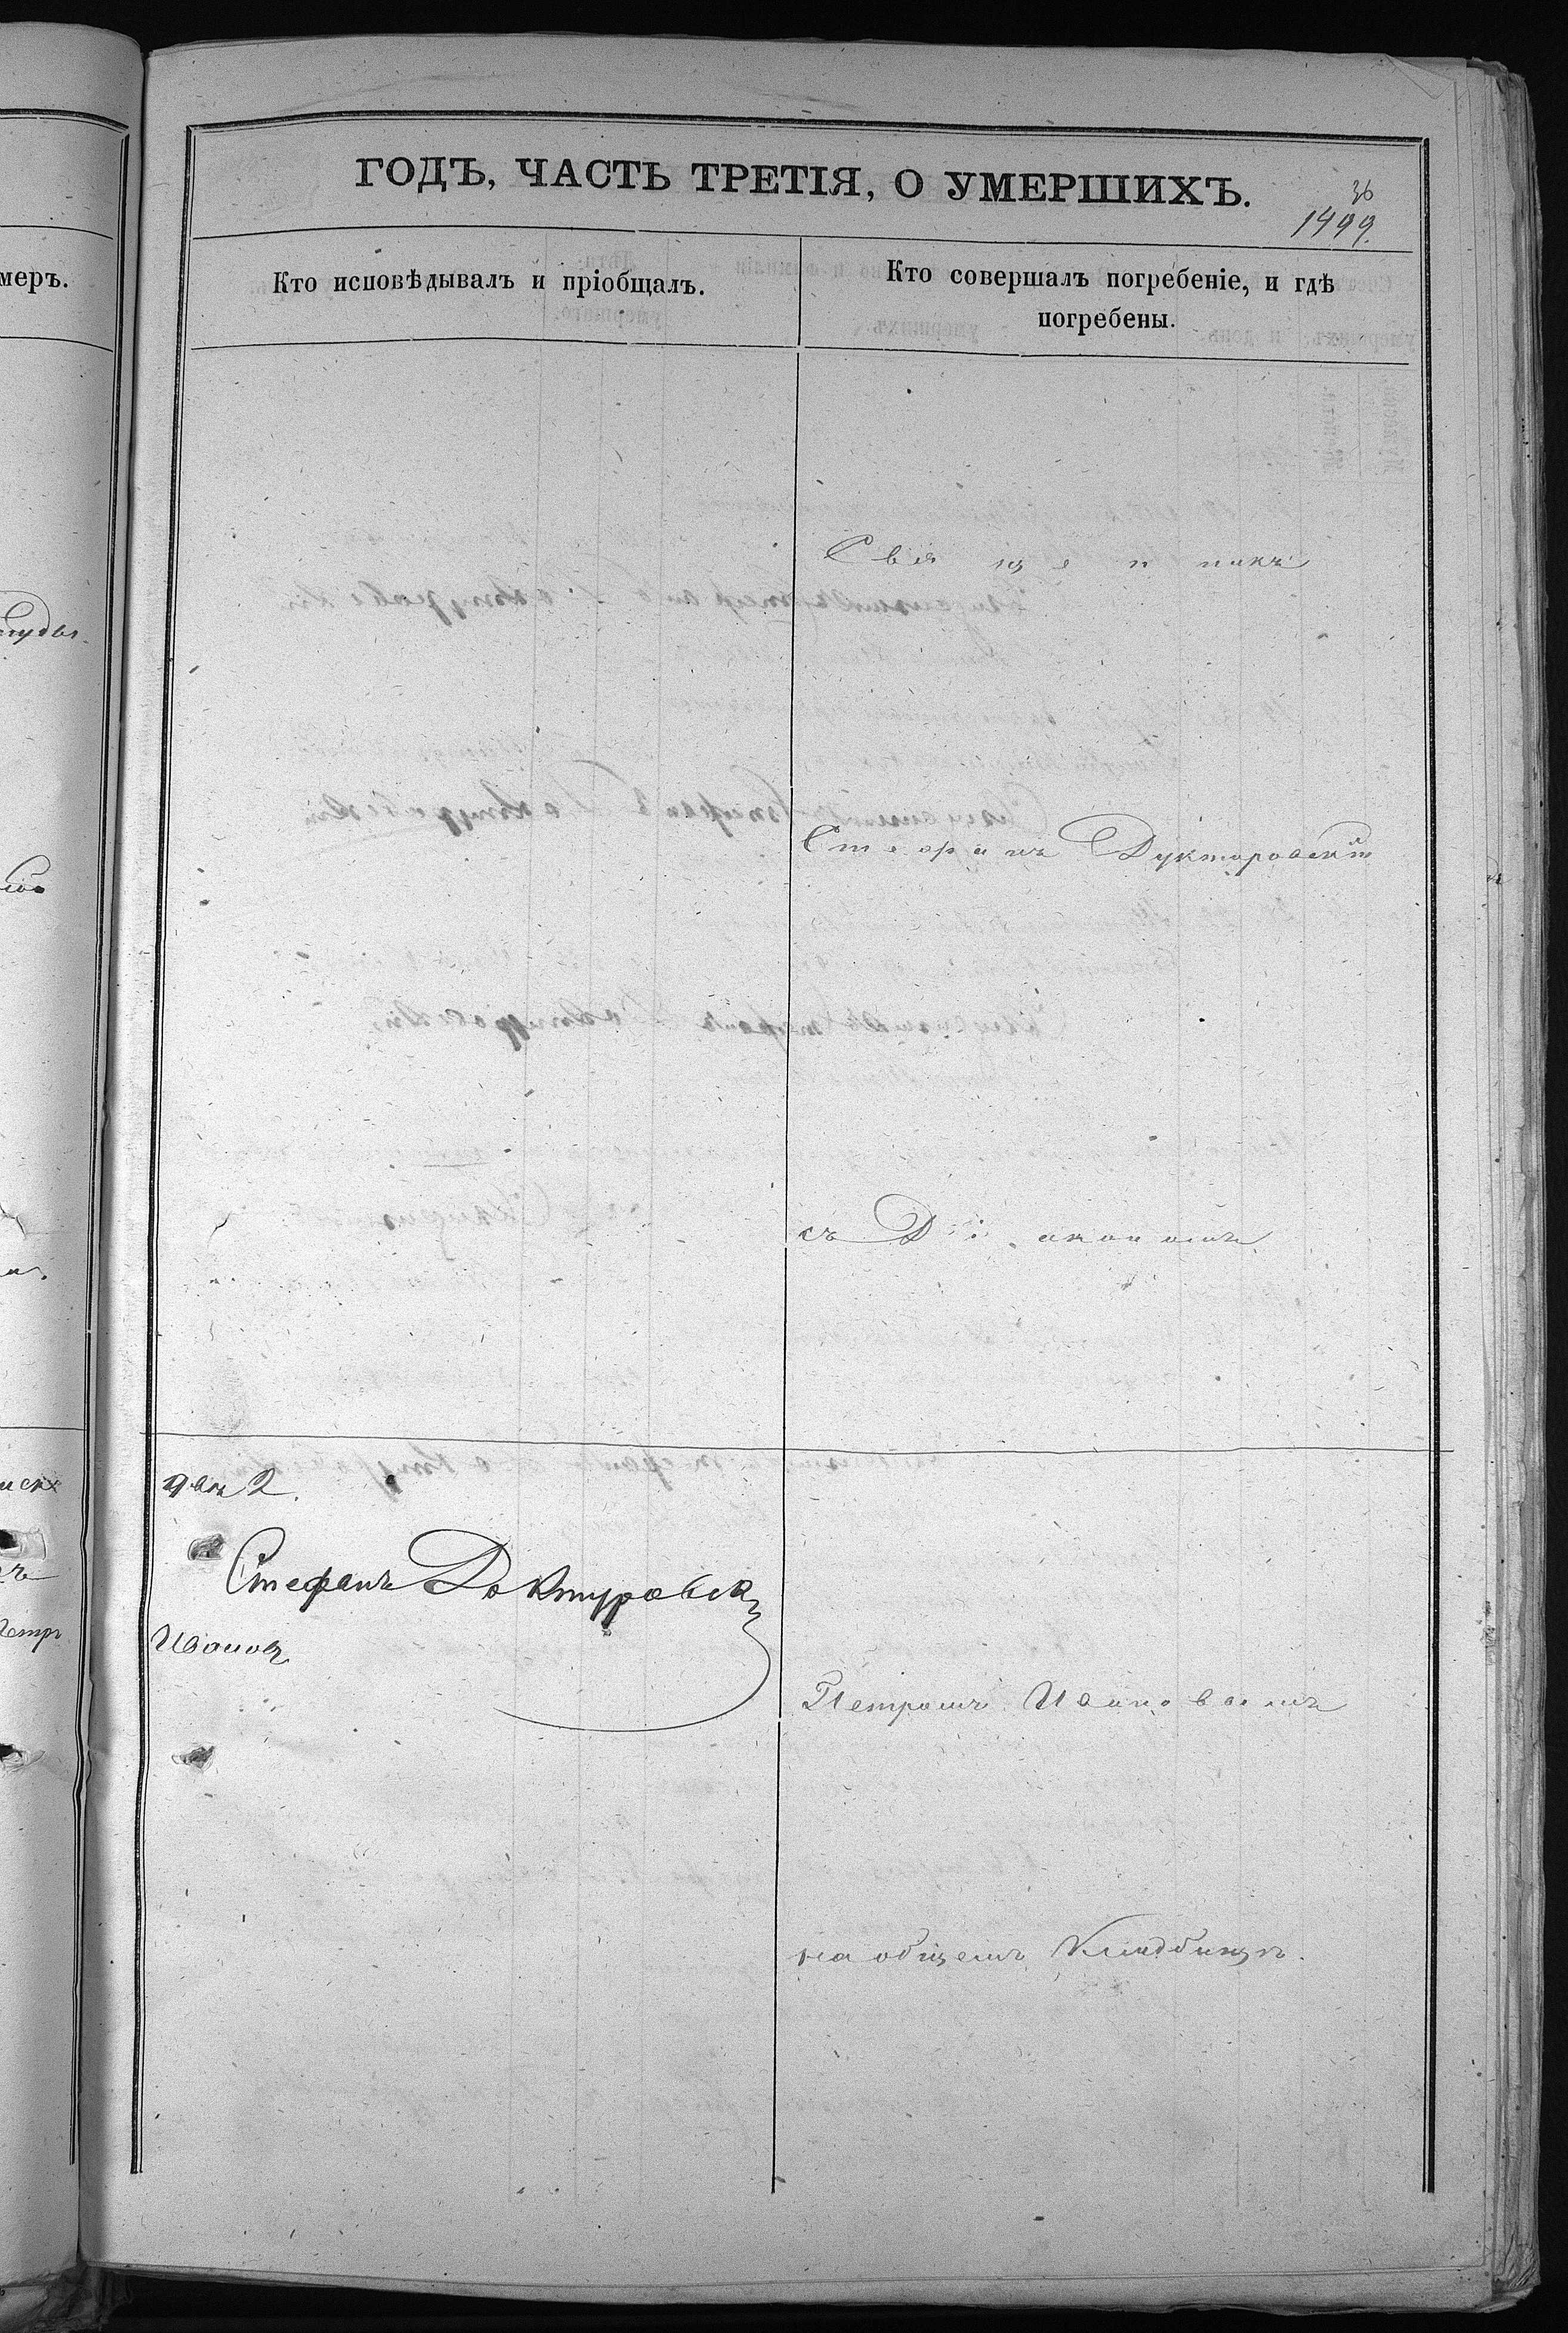 ГОДЪ, ЧАСТЬ ТРЕТІЯ, О УМЕРШИХЪ.
36
1499.
меръ.
Кто исповѣдывалъ и пріобщалъ.
Кто совершалъ погребеніе, и гдѣ
погребены.
Священникъ
Стефанъ Дукторовскій
съ Діакономъ
2.
Стефанъ Доктуровск
Иванов
Петромъ Ивановымъ
на общемъ Кладбищѣ.